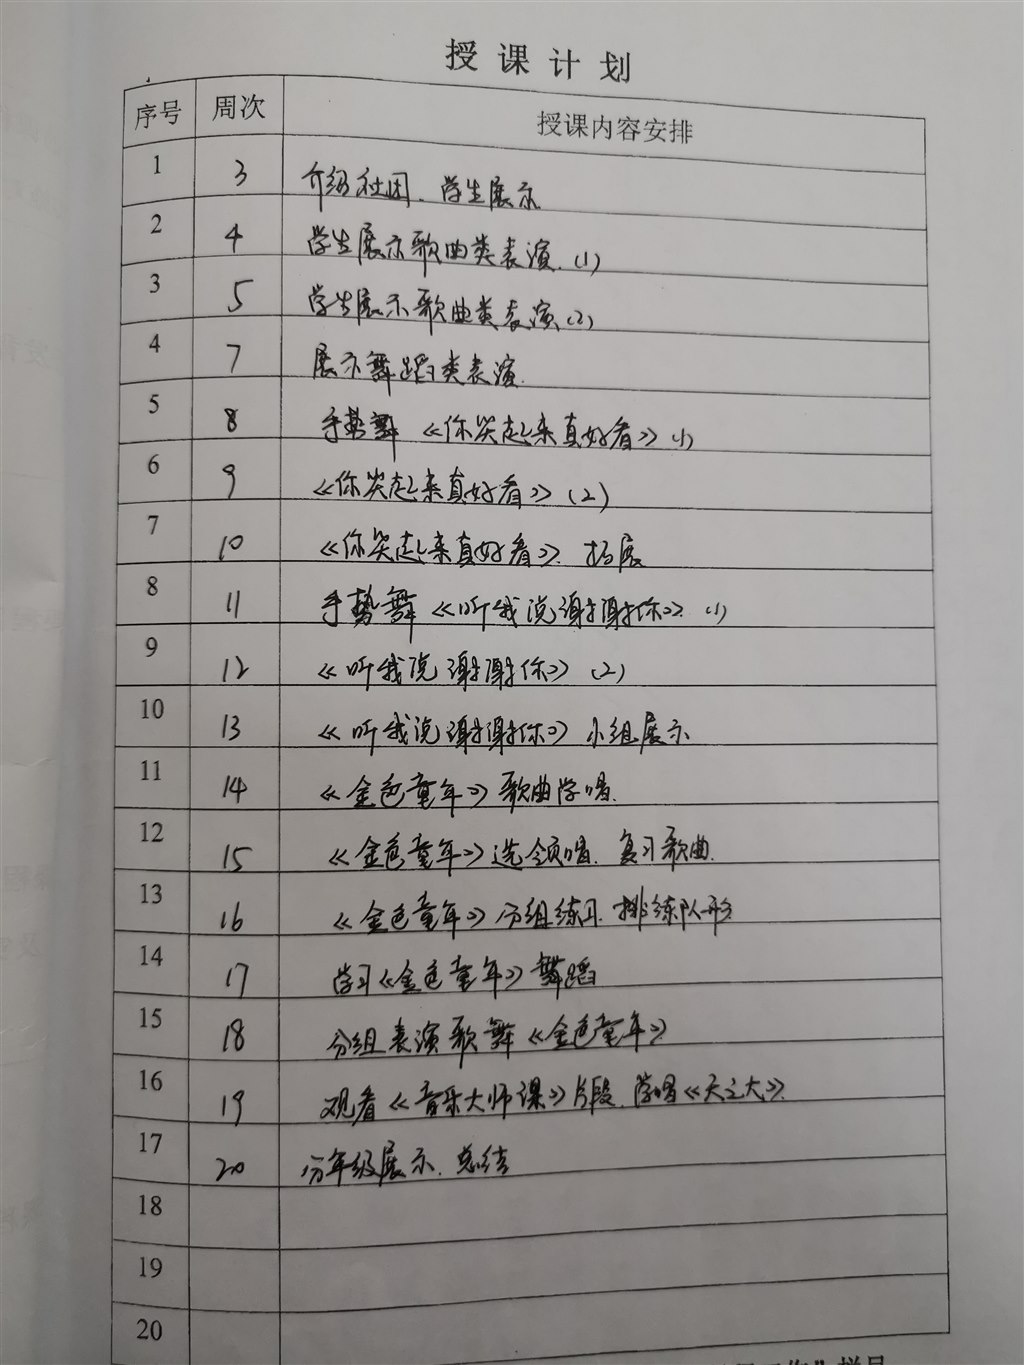 授课计划
序号 周次 授课内容安排
1 3 介绍社团、学生展示
2 4 学生展示歌曲类表演(1)
3 5 学生展示歌曲类表演(2)
4 7 展示舞蹈类表演
5 8 手势舞《你笑起来真好看》(1)
6 9 《你笑起来真好看》(2)
7 10 《你笑起来真好看》拓展
8 11 手势舞《听我说谢谢你》(1)
9 12 《听我说谢谢你》(2)
10 13 《听我说谢谢你》小组展示
11 14 《金色童年》歌曲学唱.
12 15 《金色童年》选领唱、复习歌曲.
13 16 《金色童年》分组练习、排练队形
14 17 学习《金色童年》舞蹈
15 18 分组表演歌舞《金色童年》
16 19 观看《音乐大师课》片段、学唱《天之大》.
17 20 分年级展示、总结
18
19
20